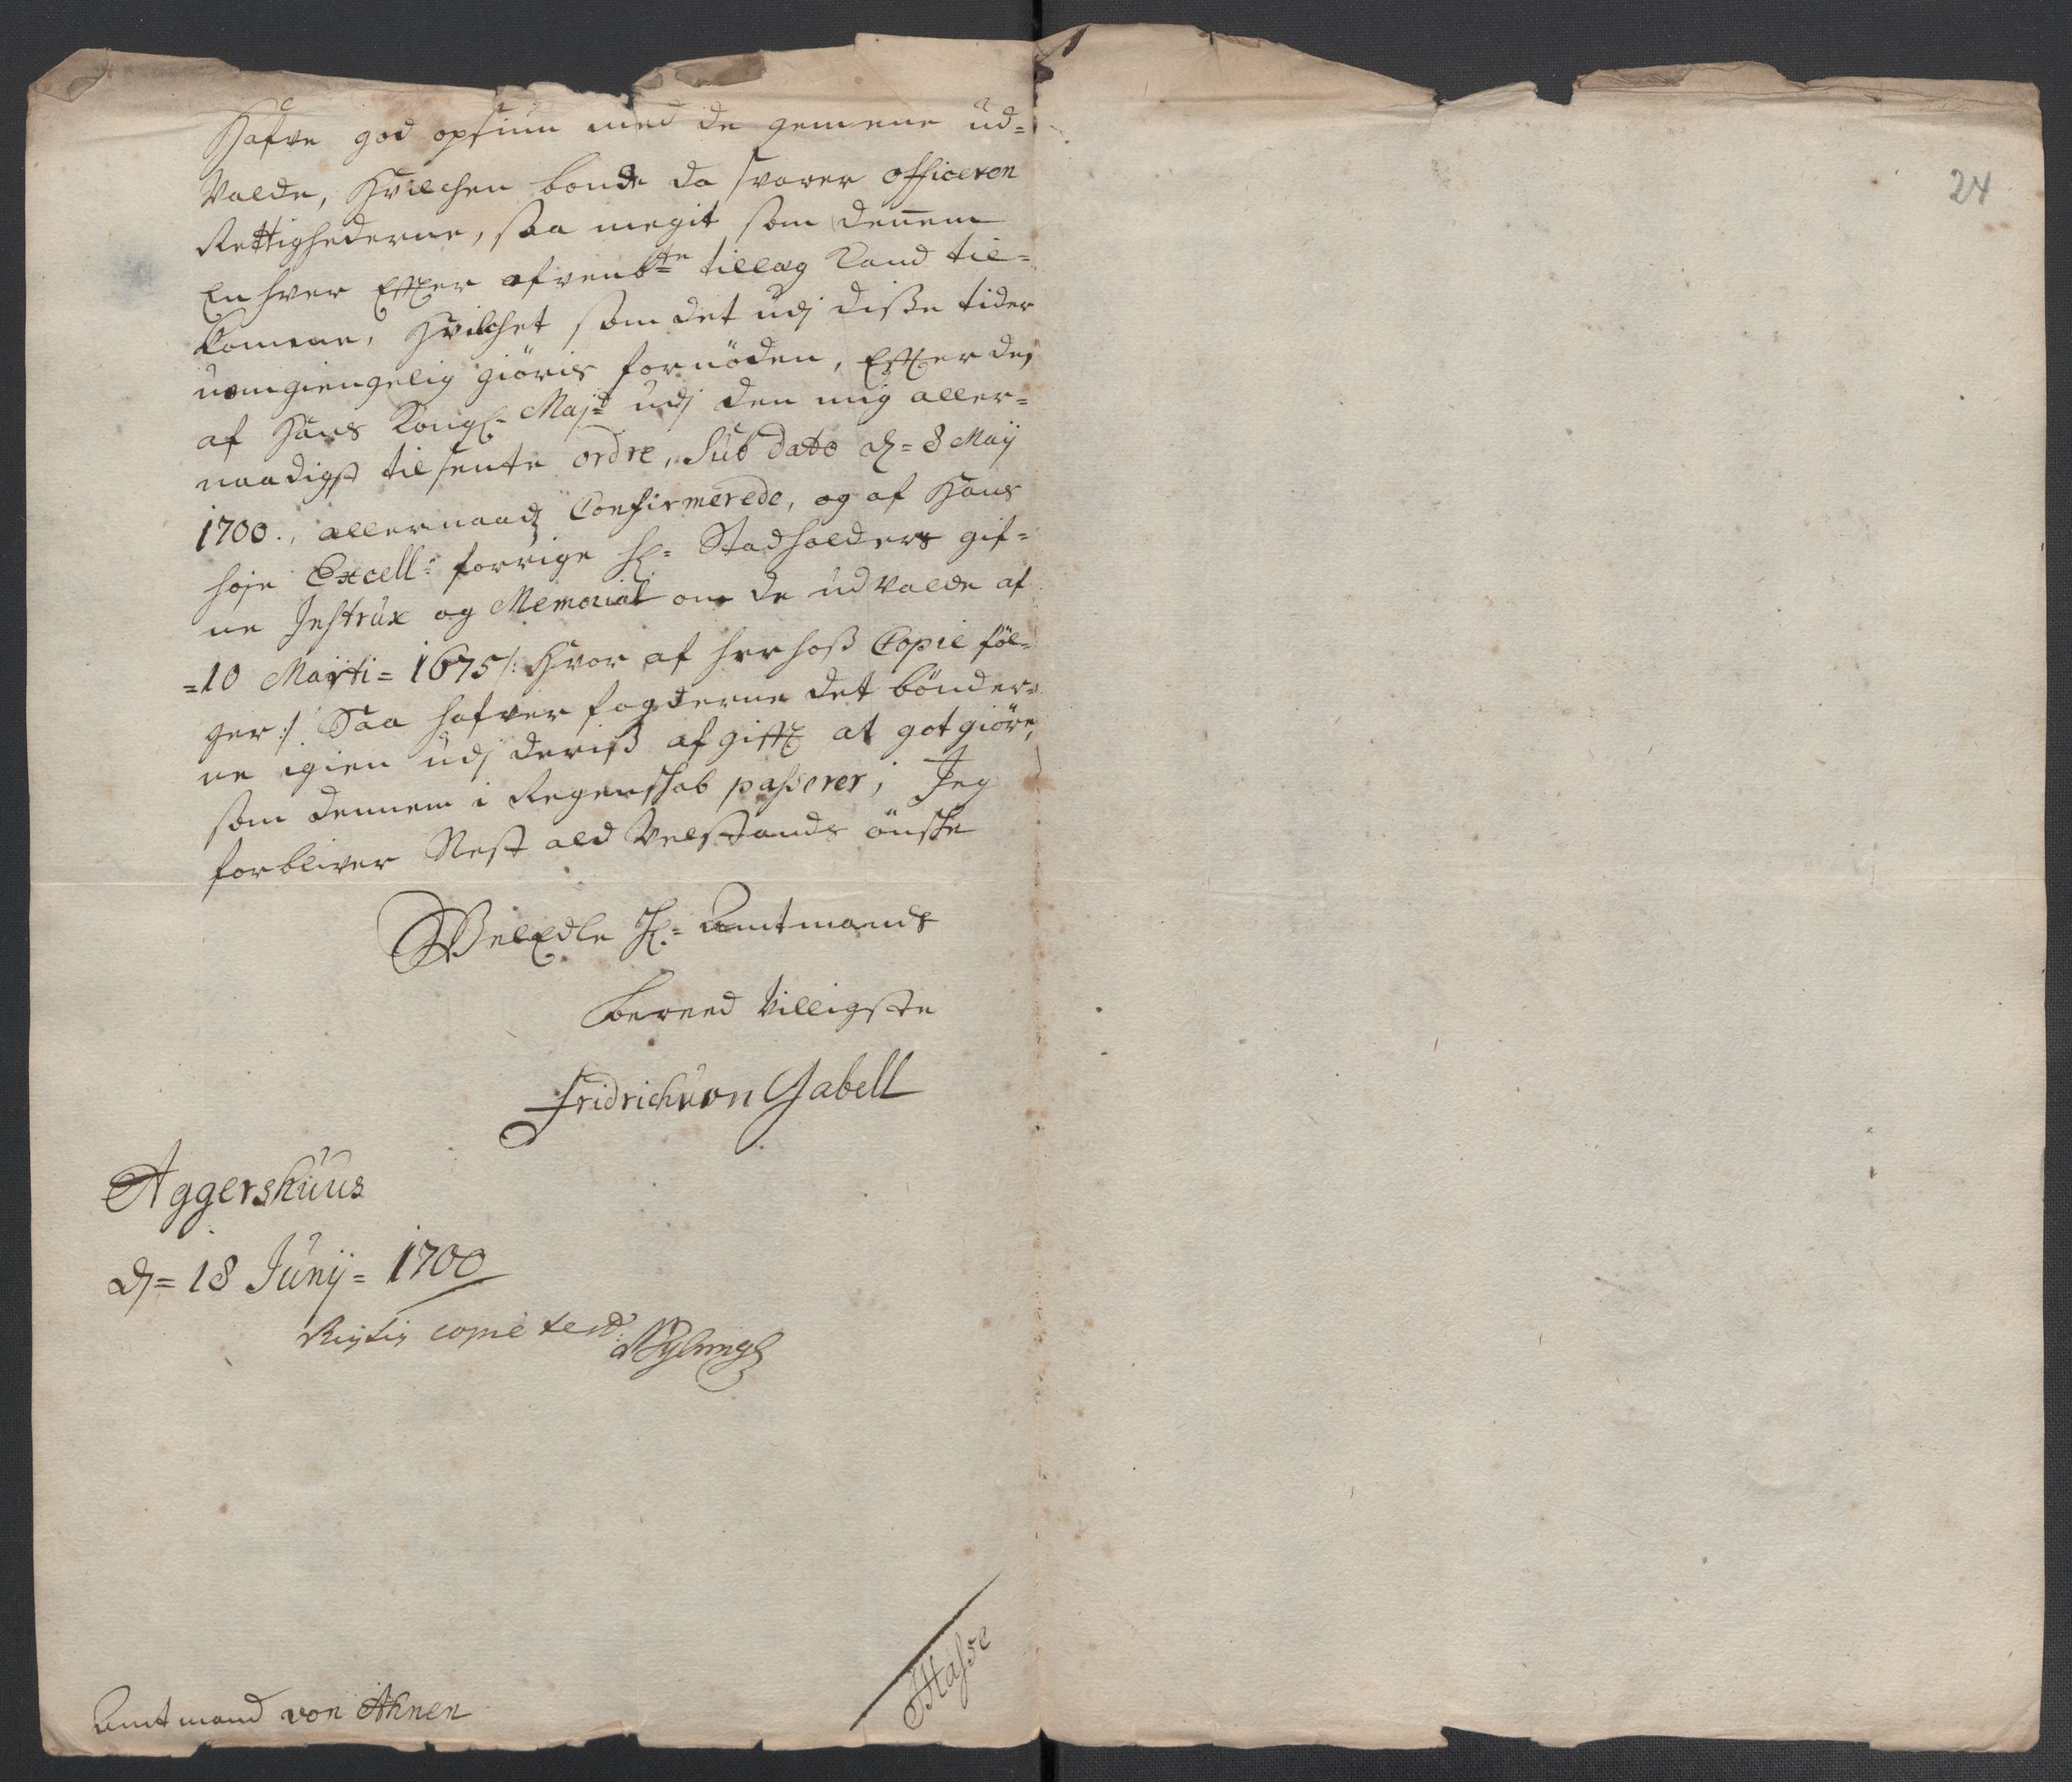 Hafve god opsiun med de gemene ud=
Valde, Hvilchen bonde da svarer officeren
Rettighederne, saa megit som dennem
En hver Effter ofvenbte tillæg Kand til=
komme, Hvilchet som det udj disse tider
uomgiengelig giöris fornöden, Effter des
af Hans Kongl: Majt udj den mig aller=
naadigst tilsente ordre, Sub dato d= 8 Maij
1700., allernaad Confirmerede, og af Hans
höje Excell: forrige H: Stadholders gif=
ne Instrux og Memorial om de udvalde af
=10 Marti= 1675 /: Hvor af herhoß Copie föl=
ger :/ Saa hafver fogderne det bönder=
ne igien udj deriß afgifft at got giöre,
som dennem i Regenschab passerer; Jeg
forbliver Nest ald Velstands önske
WelEdle H: Amtmands
bereed Villigste
Fridrich von Gabell
Aggershuus
d= 18 Junij= 1700
Rigtig copie test:
Amtmand von Ahnen
24